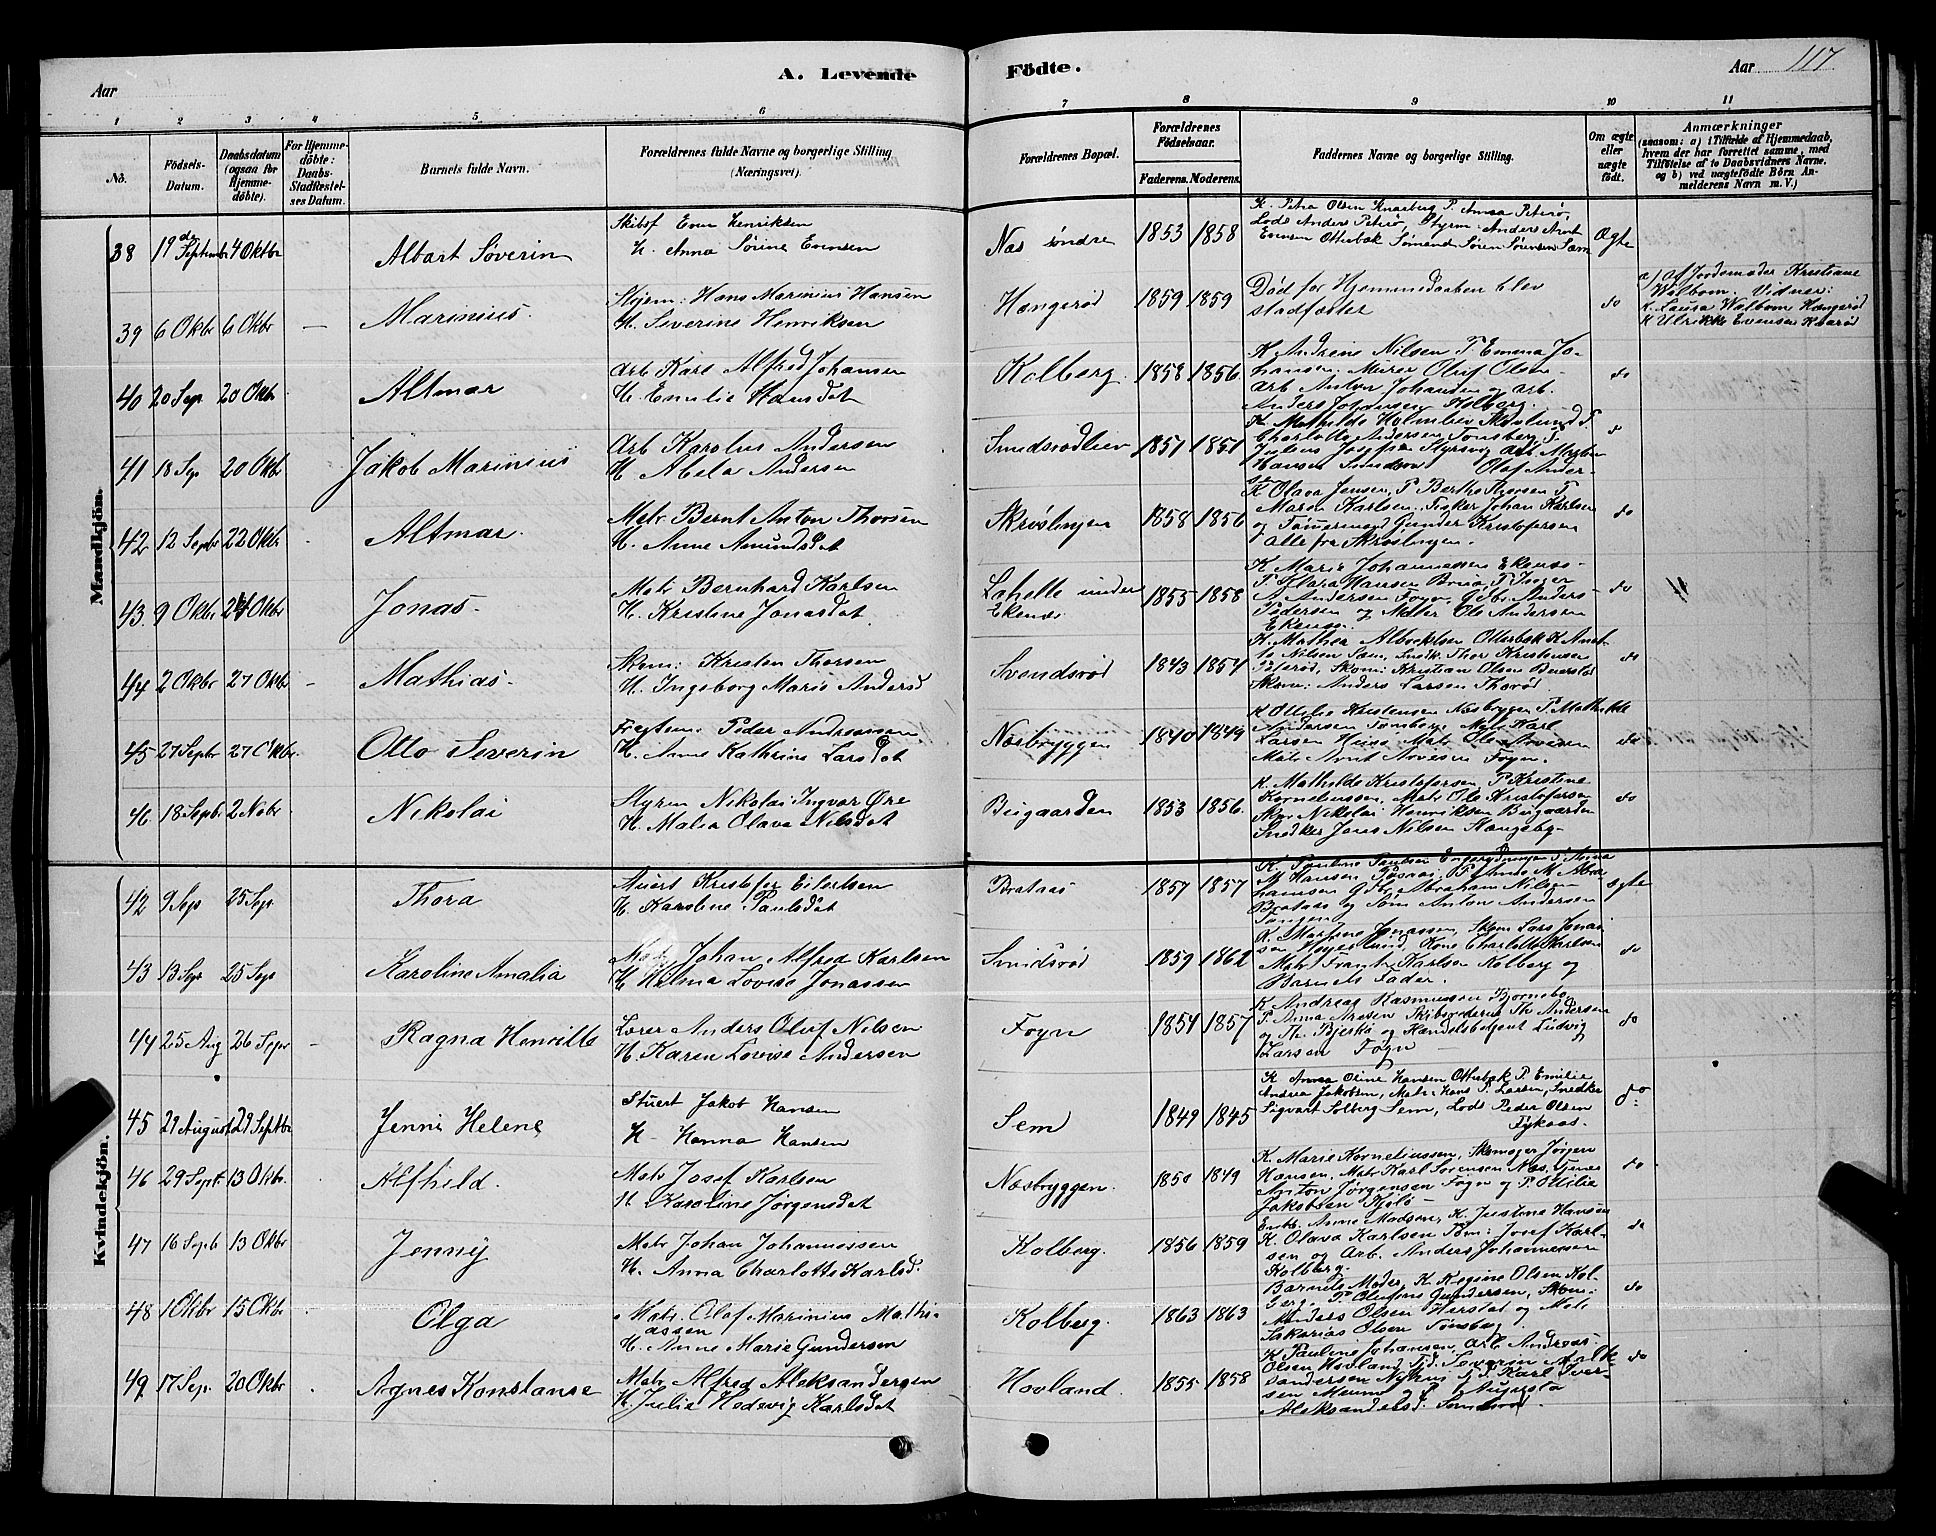 A. Levende Födte.
Aar
Aar 117
1 2 3 4 5 6 7 8 9 10 11
No. Födsels-Datum. Daabsdatum (ogsaa for Hjemme-döbte). For Hjemme-döbte: Daabs-Stadfæstel-ses Datum. Burnets fulde Navn. Forældrenes fulde Navne og borgerlige Stilling (Næringsvei). Forældrenes Bopæl. Forældrenes Födselsaar. Faderens. Moderens. Faddernes Navne og borgerlige Stilling. Om ægte eller uægte födt. Anmærkninger
(saasom: a) i Tilfælde af Hjemmedaab, hvem der har forrettet samme, med Tilföielse af to Daabsvidners Navne, og b) ved uægtefödte Börn An-melderens Navn m. V.)
Mandkjön.
38 19de Septembr 4 Oktbr Albart Söverin Skibsf Even Henriksen
H. Anna Sørine Evensen Næs søndre 1853 1858 K. Petra Olsen Knarberg P. Anna Peterø,
Lods Anders Peterø, Styrm. Anders Arnt
Evensen Otterbæk Sømand Søren Sørensen Sæm Ægte
39 6 Oktbr 6 Oktbr — Marinius. Styrm: Hans Marinius Hansen
H. Severine Henriksen Hængerød 1859 1859 Død før Hjemmedaaben blev
stadfæstet do a) af Jordemoder Kristiane
Wølbom. Vidner:
K. Laura Wølbom Hængerød
K Ulrikke Evensen
40 20 Sep 20 Oktbr Altmar Arb Karl Alfred Johansen
H. Emilie Hansdat Kolberg. 1858 1856. K. Andrine Nilsen P. Emma Jo-
hansen. Murer Oluf Olsen
arb Anton Johansen og arb.
Anders Johansen Kolberg. do
41 18 Sep 20 Oktbr Jakob Marinius Arb Karolus Andersen
H Abela Andersen Smidsrødlien 1851 1851 K. Mathilde
Charlotte Andersen Tønsberg P.
Hansen Olaf Ander-
42 12 Septbr 22 Oktbr. Altmar. Matr Bernt Anton Thorsen
H. Anne Amundsdat Skrøslingen 1858 1856 K Olava Jensen, P Berthe
Maren Karlsen. Fisker Johan Karlsen
og Gunder Kristofersen
alle fra Skrøslingen. do
43. 9 Oktbr 24 Oktbr Jonas. Matr Bernhard Karlsen
H. Kristine Jonasdat. Lahelle under
Ekenes 1855 1858 K Marie Johannessen Ekenes
P Klara Hansen P Inger
A. Andersen Føyn, Gdbr. Anders
Pedersen og Matr Ole Andersen
Ekenes. do
44 2 Oktbr 27 Oktbr — Mathias. Skom: Kristen Thorsen
H. Ingeborg Marie Andersd Svendsrød 1843 1854 K. Mathea Otterbæk K
Nilsen Sæm, Thor Kristensen
Skom: Kristian Olsen
Skom: Anders Larsen Thorød. do
45 27 Septbr 27 Oktbr. Otto Severin Peder Andreassen
H. Anne Kathrine Larsdat Næsbryggen 1840 1849 K Ottilie Kristensen Næsbryggen P Mathilde
Andersen Tønsberg, Matr Karl
Larsen Matr Ole Arvesen
Matr Arnt Arvesen Føyn. do
46. 18 Septbr 2 Nobr Nikolai Styrm Nikolai Ingvar Øre
H. Malia Olava Nilsdat Bugaarden 1853 1856. K. Mathilde Kristofersen P Kristine
Korneliussen, Matr Ole Kristofersen
Nikolai Henriksen Bugaarden
Snedker Jens Nilsen Hængsby. do
Kvindekjön.
42 9 Sep 25 Sep Thora Stuert Kristofer Eilertsen
H. Karoline Paulsdat Brataas 1857 1857 K. Pauline Paulsen P Anna
M Hansen P
hamsen Gdbr. Abraham Nilsen
Brataas og Søm Anton Andersen
Tangen ægte
43 13 Sep 25 Sep Karoline Amalia Matr Johan Alfred Karlsen
H Helma Lovise Jonassen Smidsrød 1859 1862 K. Martine Jonassen, Skom Lars Jonas
sen Kone Charlotte Karlsen
Matr Frants Karlsen Kolberg og
Barnets Fader. do
44 25 Aug 26 Sepr — Ragna Henritte Lærer Anders Oluf Nilsen
H. Karen Lovise Andersen Føyn 1854 1857 K Andrea Rasmussen Bjørnebo
P. Anna Skibsrederne Th Andersen
og Th. Bjerkø og Handelsbetjent Ludvig
Larsen Føyn do
45 29 August 29 Septbr Jenni Helene Stuert Jakob Hansen
H. Hanna Hansen Sem 1849 1845 K Anna Oline Hansen Otterbæk P. Emilie
Andrea Jakobsen, Matr Hans P. Larsen, Snedker
Sigvart Solberg Sem, Lods Peder Olsen
do
46 29 Sept. 13 Oktbr. Alfhild. Matr Josef Karlsen
H Karoline Jørgensdat Næsbryggen. 1850 1849 K. Marie Korneliussen, Skomager Jørgen
Hansen, Matr Karl Sørensen Næs,
Anton Jørgensen Føyn og P. Ottilia
Jakobsen do
47 16 Septb 13 Oktbr Jenny Matr Johan Johannessen
H. Anna Charlotte Karlsd. Kolberg. 1856 1859 Enke Anne Madsen, K. Justina Hansen
K. Olava Karlsen Tøm: Josef Karl-
sen og Arb. Anders Johannesen
Kolberg. do
48 1 Oktbr 15 Oktbr Olga Matr. Olaf Marinius Mathi-
assen
H. Anne Marie Gundersen Kolberg. 1863 1863 Barnets Moder, K. Regine Olsen Kol-
berg. P. Gundersen, Skom:
Anders Olsen og Matr
Sakarias Olsen Tønsberg. do
49 17 Sep. 20 Oktbr Agnes Konstanse Matr Alfred Aleksandersen
H. Julie Hedevig Karlsdat Hovland. 1855 1858 K Pauline Johansen, Arb. Andreas
Olsen Hovland, Severin Alek
sandersen Karl Iver-
sen og P. Augusta
Aleksandersd. Smidsrød. do